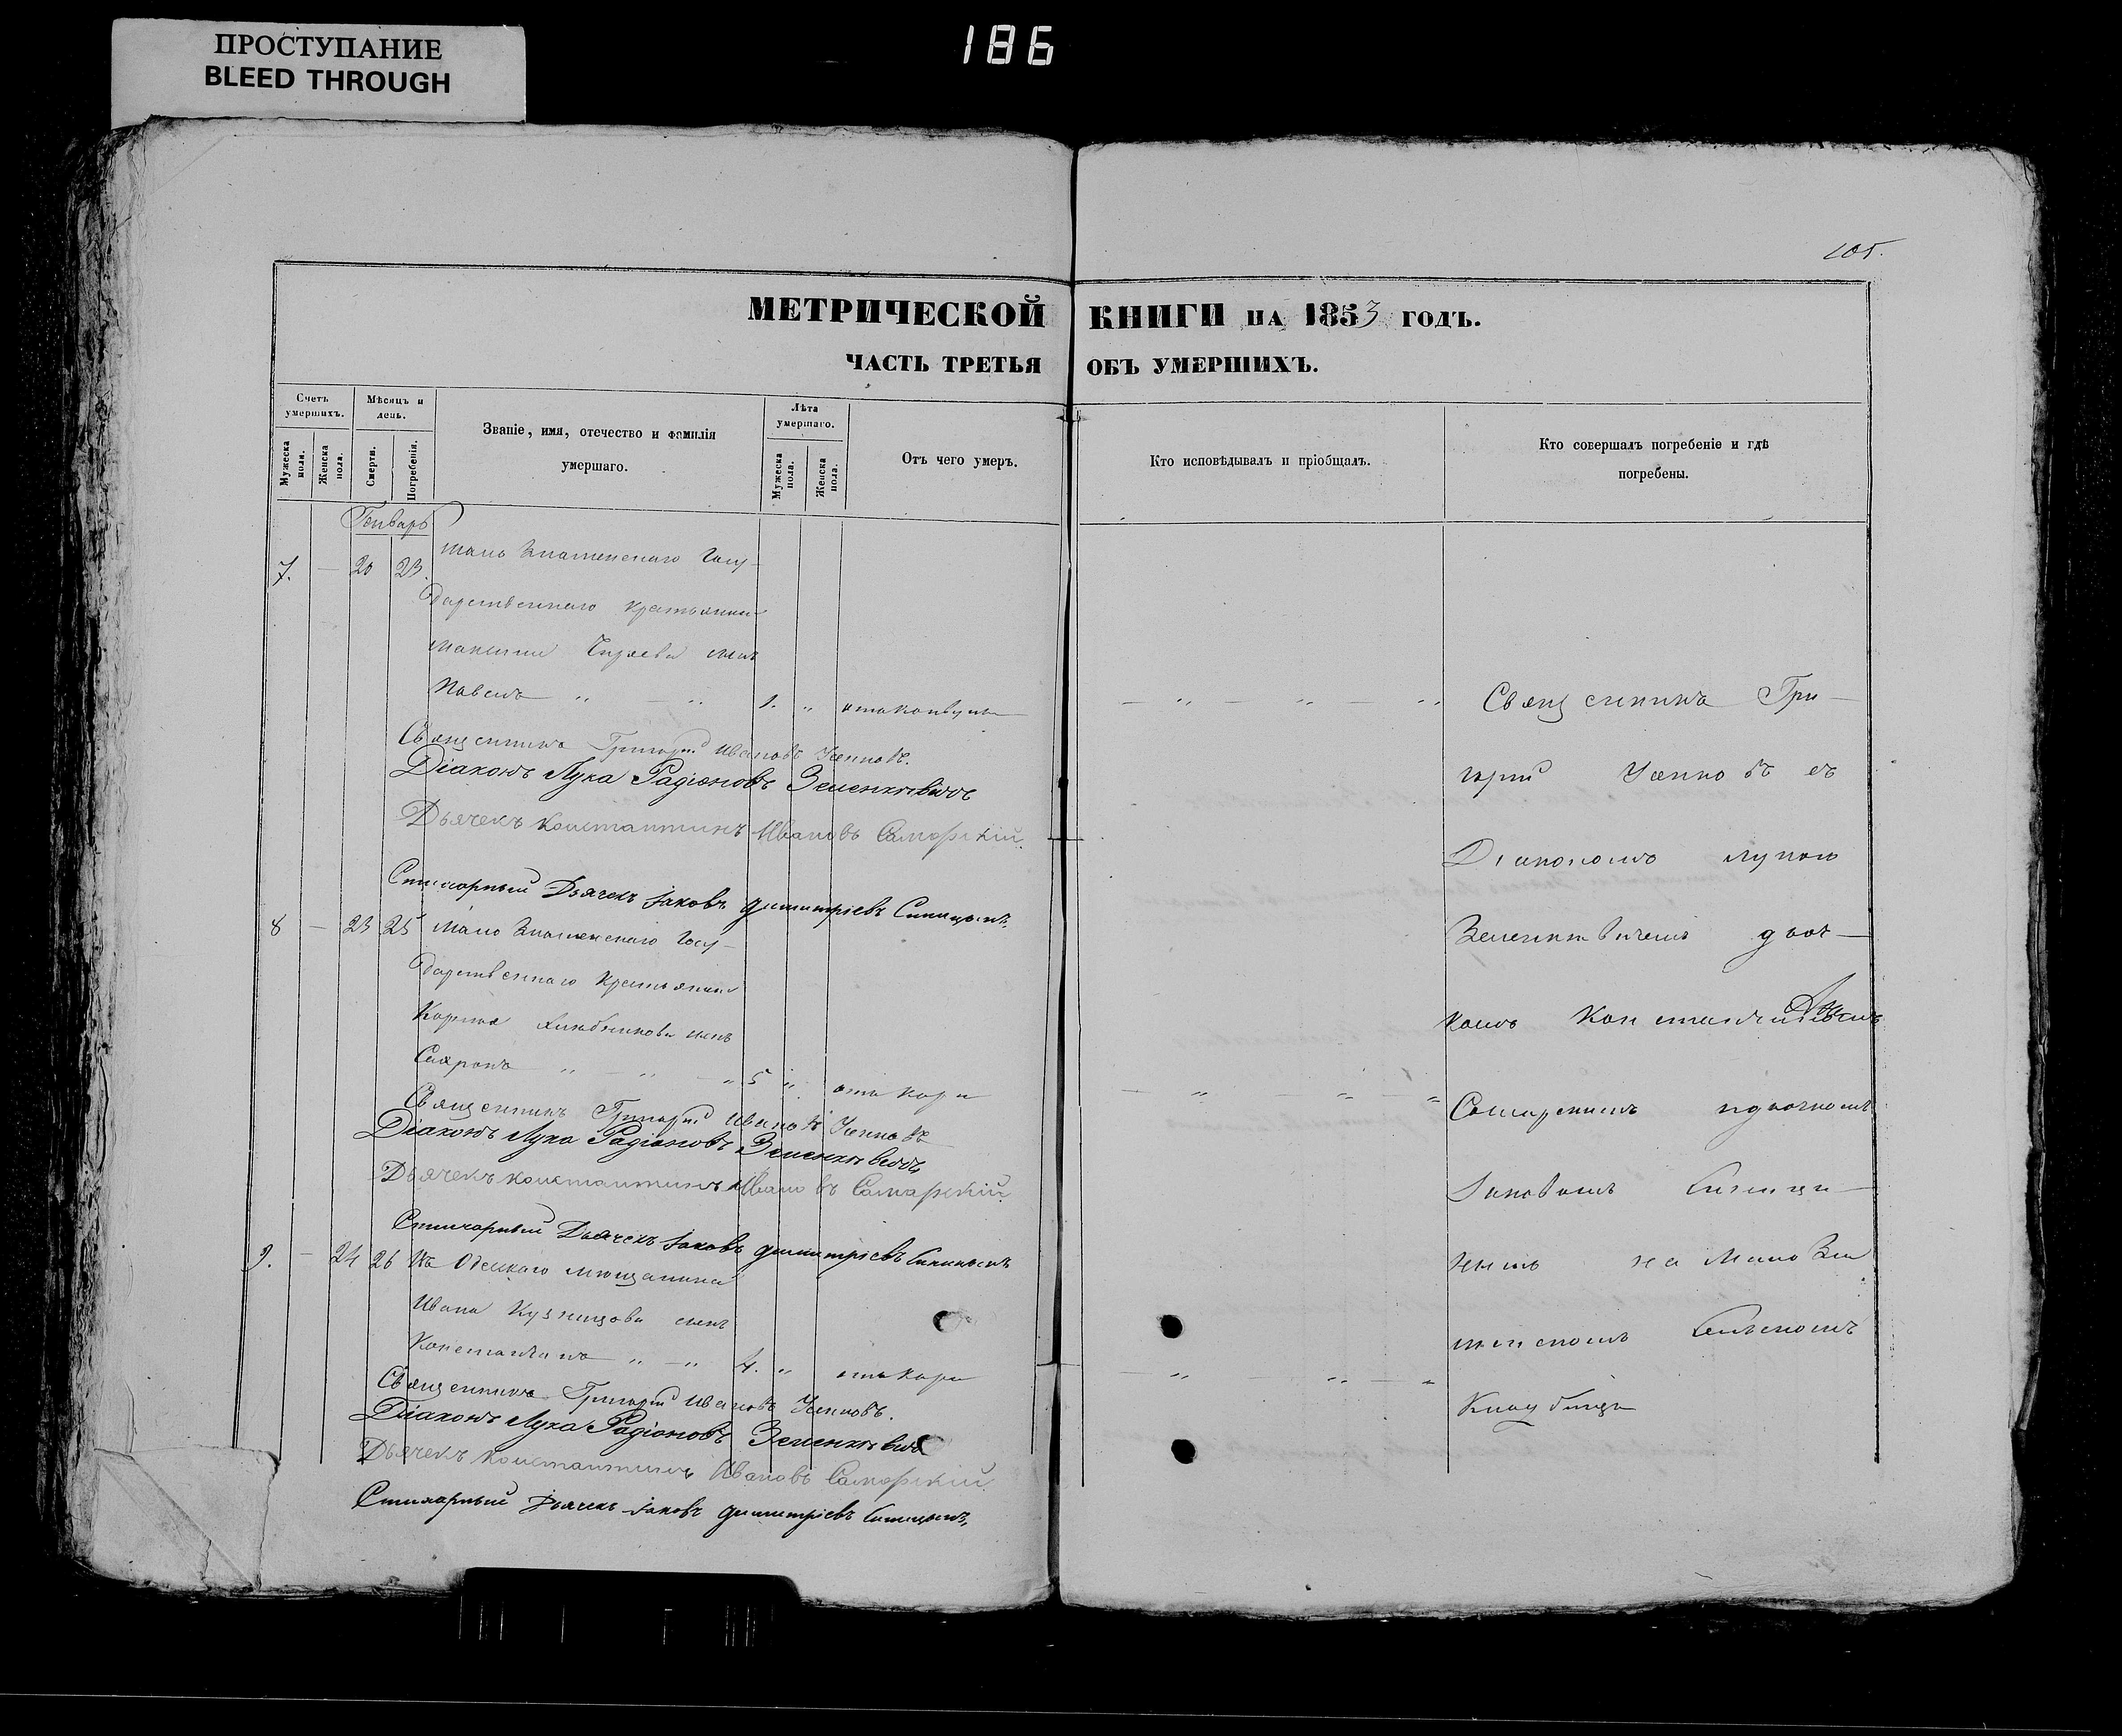 ПРОСТУПАНИЕ
BLEED THROUGH
186
105.
МЕТРИЧЕСКОЙ КНИГИ НА 1853 ГОДЪ.
ЧАСТЬ ТРЕТЬЯ ОБЪ УМЕРШИХЪ.
Счетъ умершихъ.
Мужеска пола.
Женска пола.
Мѣсяцъ и день.
Смерти.
Погребенія.
Званіе, имя, отечество и фамилія умершаго.
Лѣта умершаго.
Мужеска пола.
Женска пола.
Отъ чего умеръ.
Кто исповѣдывалъ и пріобщалъ.
Кто совершалъ погребеніе и гдѣ погребены.
Генварь
7. — 20 23. мало Знаменскаго Госу-
дарственнаго крестьянина
Максима сынъ
Павелъ 1. „
Священникъ Григорій Ивановъ
Діаконъ Лука Радіоновъ Зеленкевичъ
Дьячекъ Константинъ Ивановъ Самарскій.
Стихарный Дьячекъ Іаковъ Димитріевъ Синицынъ.
8 — 23 25 Мало Знаменскаго Госу-
дарственнаго Крестьянина
Карпа сынъ
5 „ отъ кори
Священникъ Григорій Ивановъ
Діаконъ Лука Радіоновъ Зеленкевичъ
Дьячекъ Константинъ Ивановъ Самарскій.
Стихарный Дьячекъ Іаковъ Димитріевъ Синицынъ
9. — 24 26 Одескаго мещанина
Ивана Кузнецова сынъ
Константинъ 4. „ отъ кори
Священникъ Григорій Ивановъ
Діаконъ Лука Радіоновъ Зеленкевичъ
Дьячекъ Константинъ Ивановъ Самарскій.
Стихарный Дьячекъ Іаковъ Димитріевъ Синицынъ.
Священникъ Гри-
горій съ
Діакономъ Лукою
Зеленкевичемъ дьяч-
комъ Константиномъ
Самарскимъ
Іаковомъ Синици-
нымъ на Мало Зна
менскомъ Сельскомъ
Кладбище